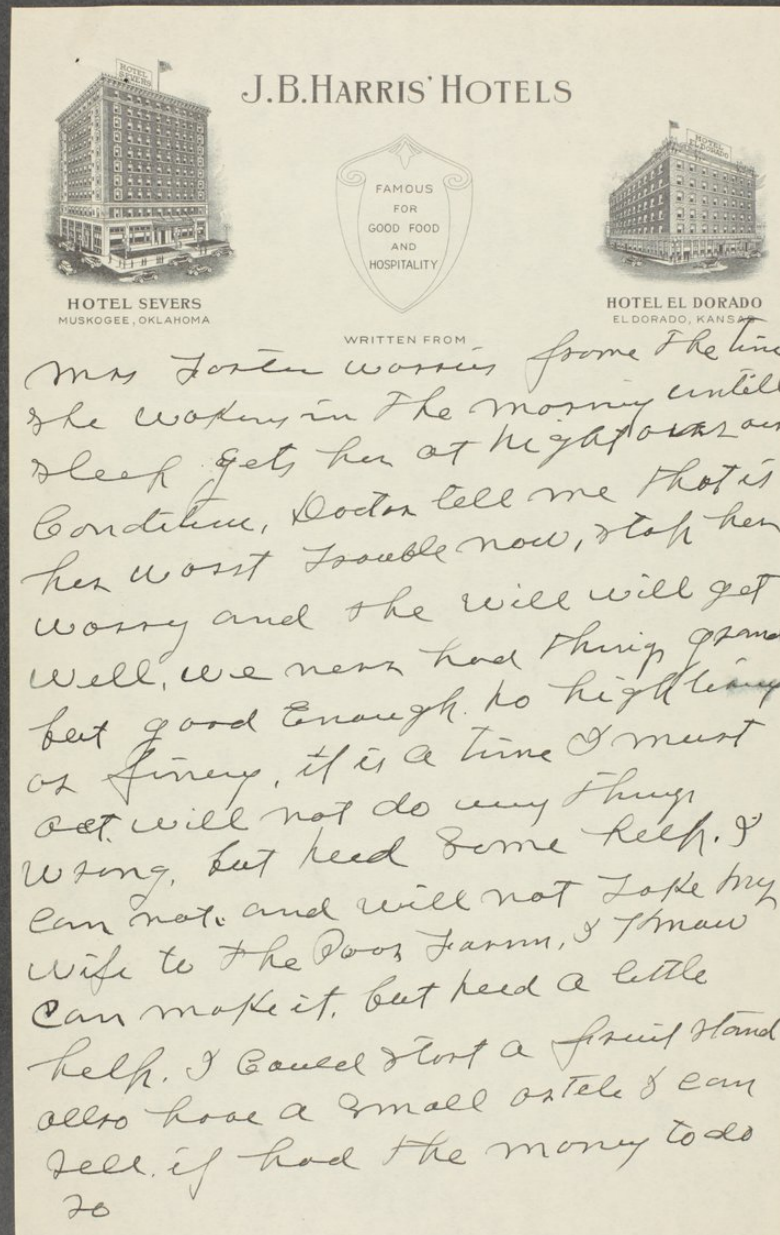 HOTEL
SEVERS
J.B.HARRIS' HOTELS
HOTEL
EL DORADO
FAMOUS
FOR
GOOD FOOD
AND
HOSPITALITY
HOTEL SEVERS
MUSKOGEE, OKLAHOMA
HOTEL EL DORADO
ELDORADO, KANSAS
WRITTEN FROM
Mrs Foster worries frome the time
she wakens in the morning untill
sleep gets her at night over our
Condition, Doctor tell me that is
her worst trouble now, stop her
worry and she will will get
well, we never had things grand
but good Enough. no high living
or finery, it is a time I must
act. will not do any things
wrong, but need some help. I
can not. and will not take my
wife to the Poor Farm, I Know
Can make it, but need a little
help. I Could start a fruit stand
allso have a small I can
sell. if had the money to do
so